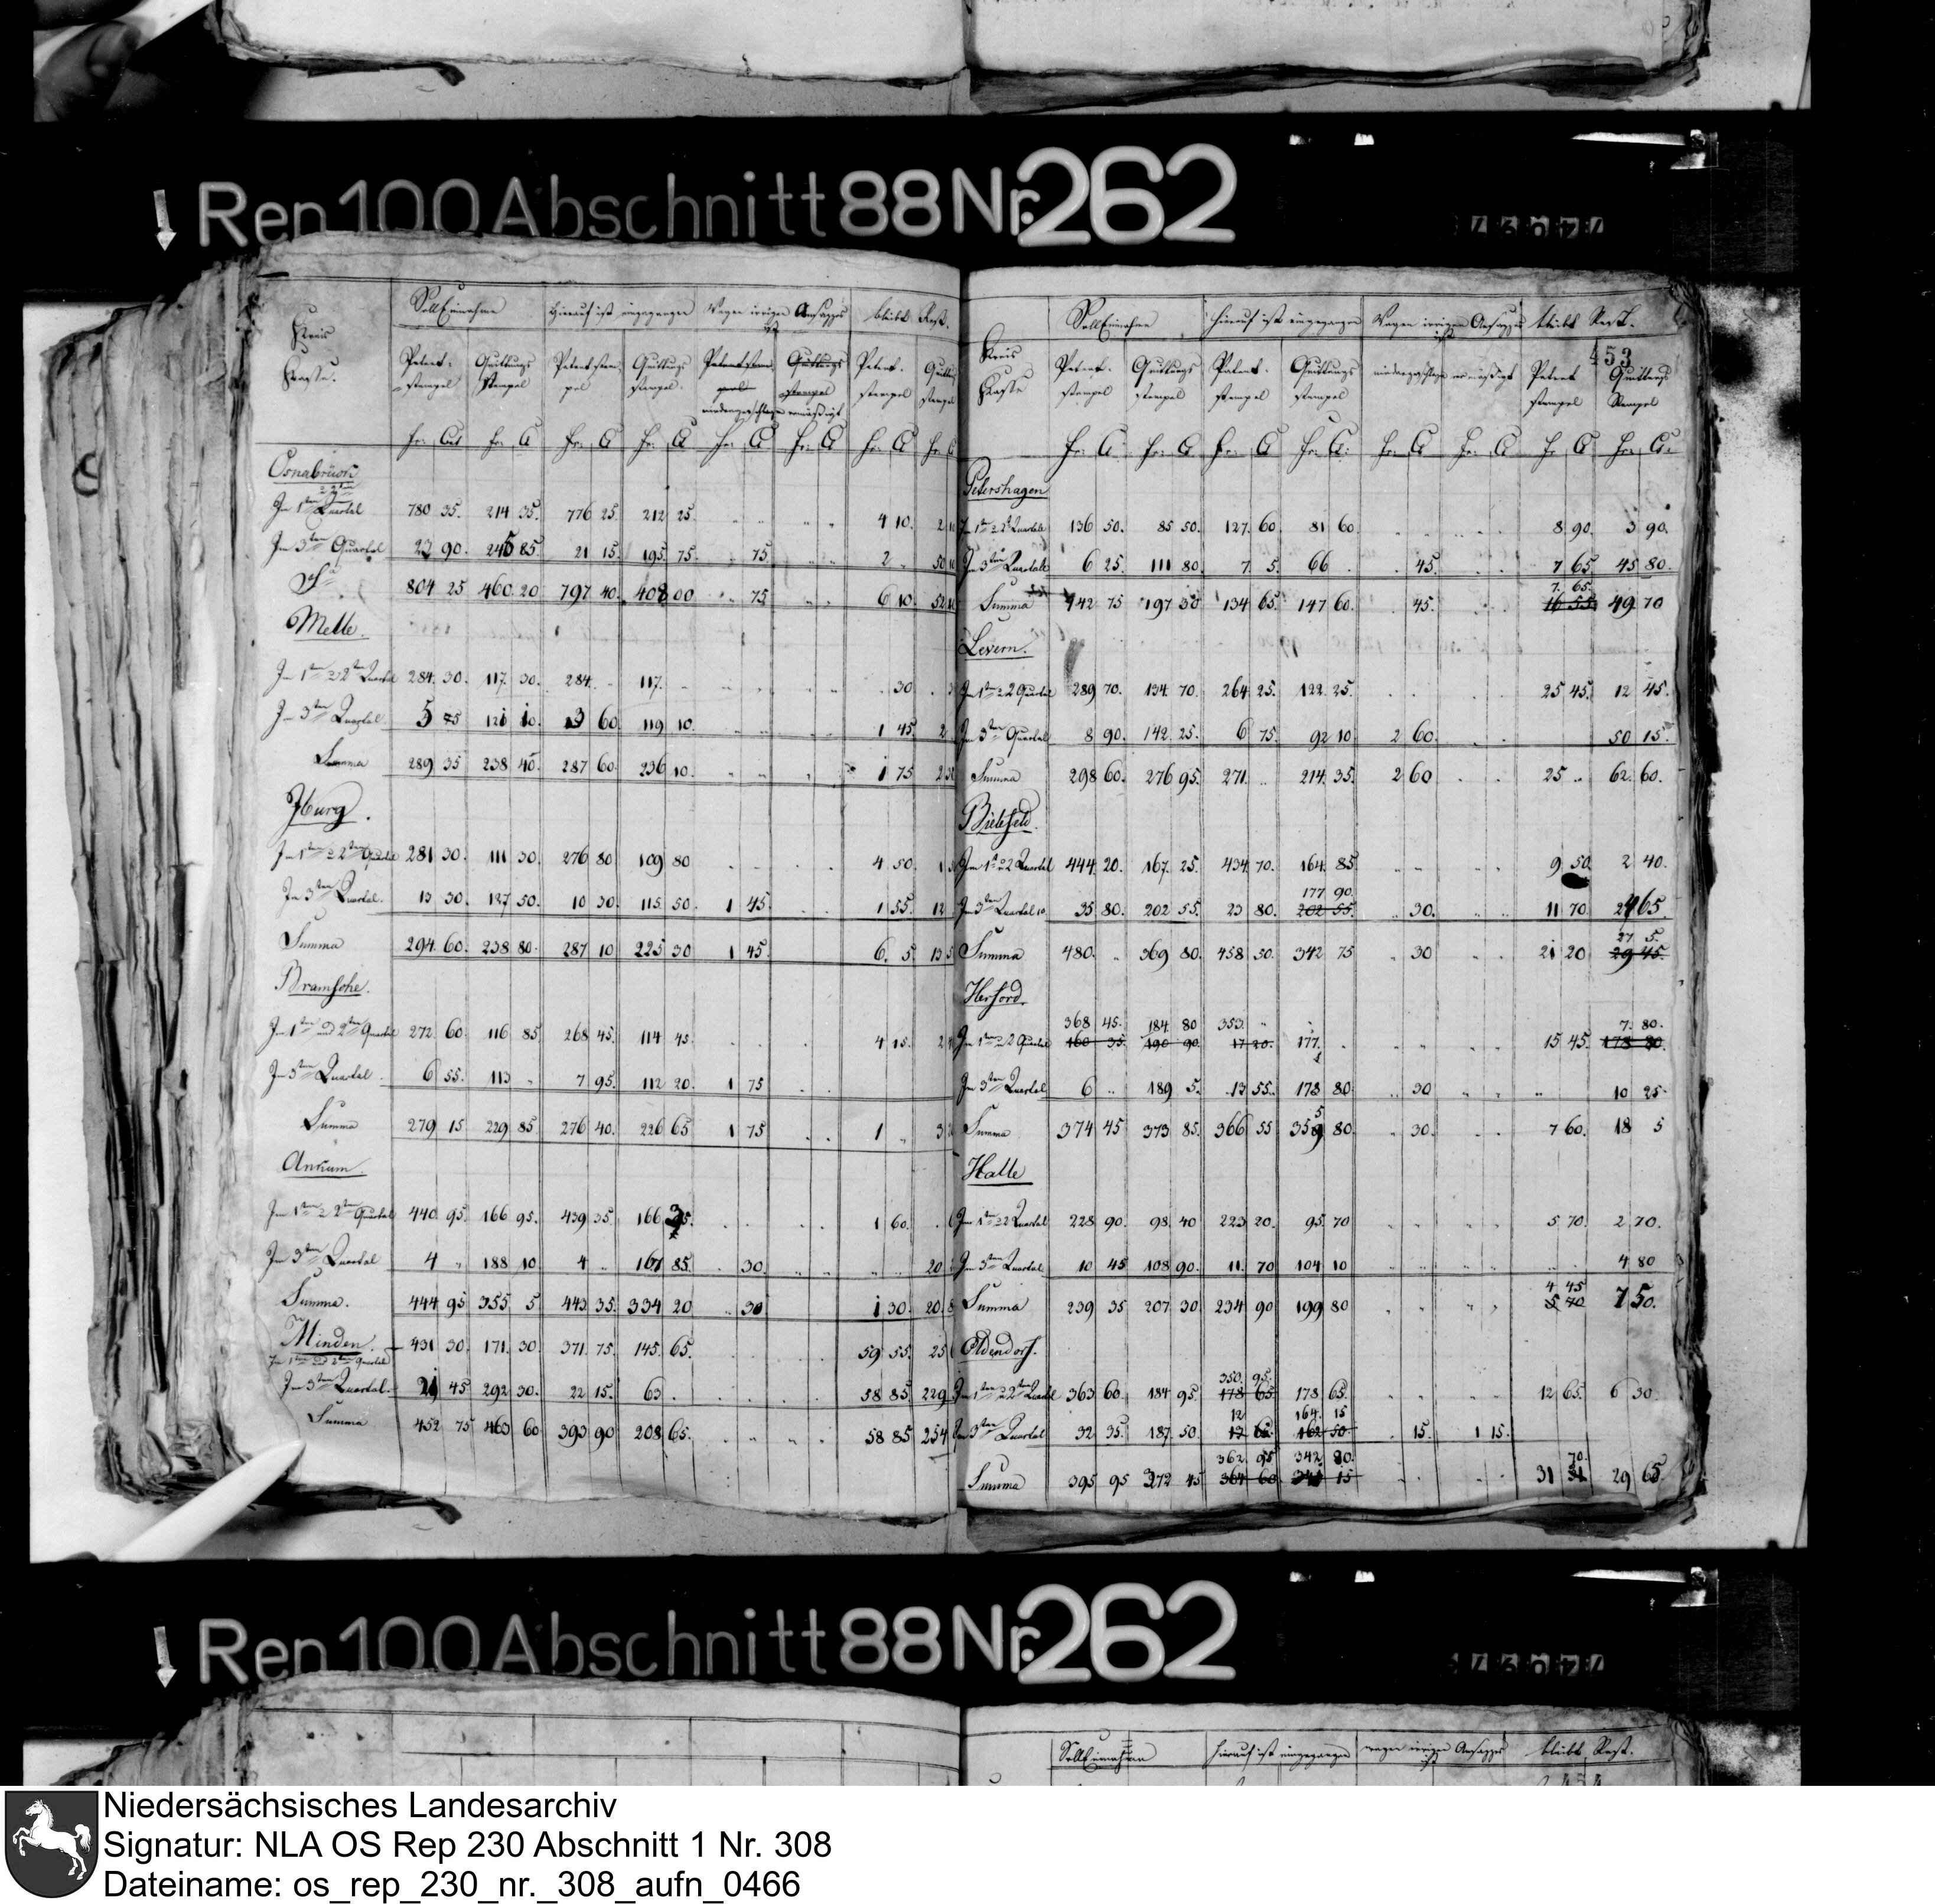 Rep 100 Abschnitt 88 Nr. 262
Kreis Kasse. Soll Einnahme hierauf ist eingegangen Wegen irrigen Ansatzes ist bleibt Rest.
Patent-stempel Quittungs stempel Patentstem-pel Quittungs stempel. niedergeschlagen ermäßigt Patent-stempel
fr. Cts fr. Ct fr. Ct fr. Ct fr. Ct fr. Ct fr. Ct
Osnabrück
Im 1ten Quartal 780 35. 214 35. 776 25. 212 25. 4 10.
Im 3ten Quartal 23 90. 245 85. 21 15. 195 75. 75. 2
804 25 460 20 797 40. 408 00 75 6 10.
Melle.
Im 1ten 2ten Quartal 284. 30. 117. 30. 284. 117. 30
Im 3ten Quartal 5 75 121 10. 3 60. 119 10. 1 45
Summa 289 35 238 40. 287 60. 236 10. 1 75
Iburg.
Im 1ten 2ten Quartal 281 30. 111 30. 276 80 109 80 4 50.
Im 3ten Quartal. 13 30. 127 50. 10 30. 115 50. 1 45. 1 55.
Summa 294. 60. 238 80. 287 10 225 30 1 45. 6. 5.
Bramsche.
Im 1ten und 2ten Quartal 272. 60. 116 85. 268 45. 114 45. 4 15.
Im 3ten Quartal. 6 55. 113 7 95. 112 20. 1 75
Summa 279 15 229 85. 276 40. 226 65 1 75 1
Ankum
Im 1ten 2ten Quartal 440 95. 166 95. 439 35. 166 35. 1 60.
Im 3ten Quartal 4 188 10. 4 167 85. 30.
Summa. 444 95 355 5 443 35. 334 20 30 1 30.
Minden. 431 30. 171. 30. 371 75. 145. 65. 59 55.
Im 1ten und 2ten Quartal
Im 3ten Quartal. 21 45 292 30. 22 15. 63. 58 85.
Summa 452 75 463 60 393 90 208 65. 58 85
Kreis Kasse Soll Einnahme hierauf ist eingegangen Wegen irrigen Ansatzes ist bleibt Rest.
453
Patent-stempel Quittungs stempel Patent-stempel Quittungs stempel niedergeschlagen ermäßigt Patent stempel Quittungs Stempel
fr. Ct fr. Ct fr. Ct fr. Ct fr. Ct fr. Ct fr. Ct fr. Ct
Petershagen
Im 1ten 2ten Quartal 136 50. 85 50. 127. 60. 81 60. 8 90. 3 90.
Im 3ten Quartal 6 25. 111 80. 7 5. 66. 45. 7 65. 45 80.
7. 65.
Summa 142 75 197 30 134 65. 147 60. 45. 16 55. 49 70
Levern.
Im 1ten 2 Quartal 289 70. 134. 70. 264 25. 122. 25. 25 45. 12 45.
Im 3ten Quartal 8 90. 142 25. 6 75. 92 10 2 60. 50 15.
Summa 298 60. 276 95. 271. 214. 35. 2 60 25 62. 60.
Bielefeld.
Im 1ten 2 Quartal 444 20. 167. 25. 434 70. 164. 85. 9 50. 2 40.
177 90.
Im 3ten Quartal 35 80. 202 55. 23 80. 202 55. 30. 11 70. 24 65.
27 5.
Summa 480. 369 80. 458 50. 342 75 30 21 20 29 45.
Herford.
368 45. 184. 80 353. 7. 80.
Im 1ten 2 Quartal 190 90. 17 20. 177. 15 45. 178 80.
Im 3ten Quartal 6 189 5. 13 55. 178 80 30 10 25.
Summa 374 45 373 85. 366 55 80. 30. 7 60. 18 5
Halle
Im 1ten 2 Quartal 228 90. 98 40 223 20. 95 70 5 70. 2 70.
Im 3ten Quartal. 10 45 108 90. 11. 70 104 10 4 80
4 45
Summa 239 35 207 30 234 90 199 80 5 70 7 50.
Oldendorf.
350. 95.
Im 1ten 2ten Quartal 363 60. 184 95. 178 65 178 65. 12 65. 6 30.
12 164. 15
Im 3ten Quartal 32 35. 187. 50. 162 50. 15. 1 15.
362. 95 342. 80. 70.
Summa 395 95 372 45 364 60. 341 15 31 29 65
Rep 100 Abschnitt 88 Nr. 262
Soll Einnahme hierauf ist eingegangen wegen irrigen Ansatzes ist bleibt Rest.
Niedersächsisches Landesarchiv
Signatur: NLA OS Rep 230 Abschnitt 1 Nr. 308
Dateiname: os_rep_230_nr._308_aufn_0466